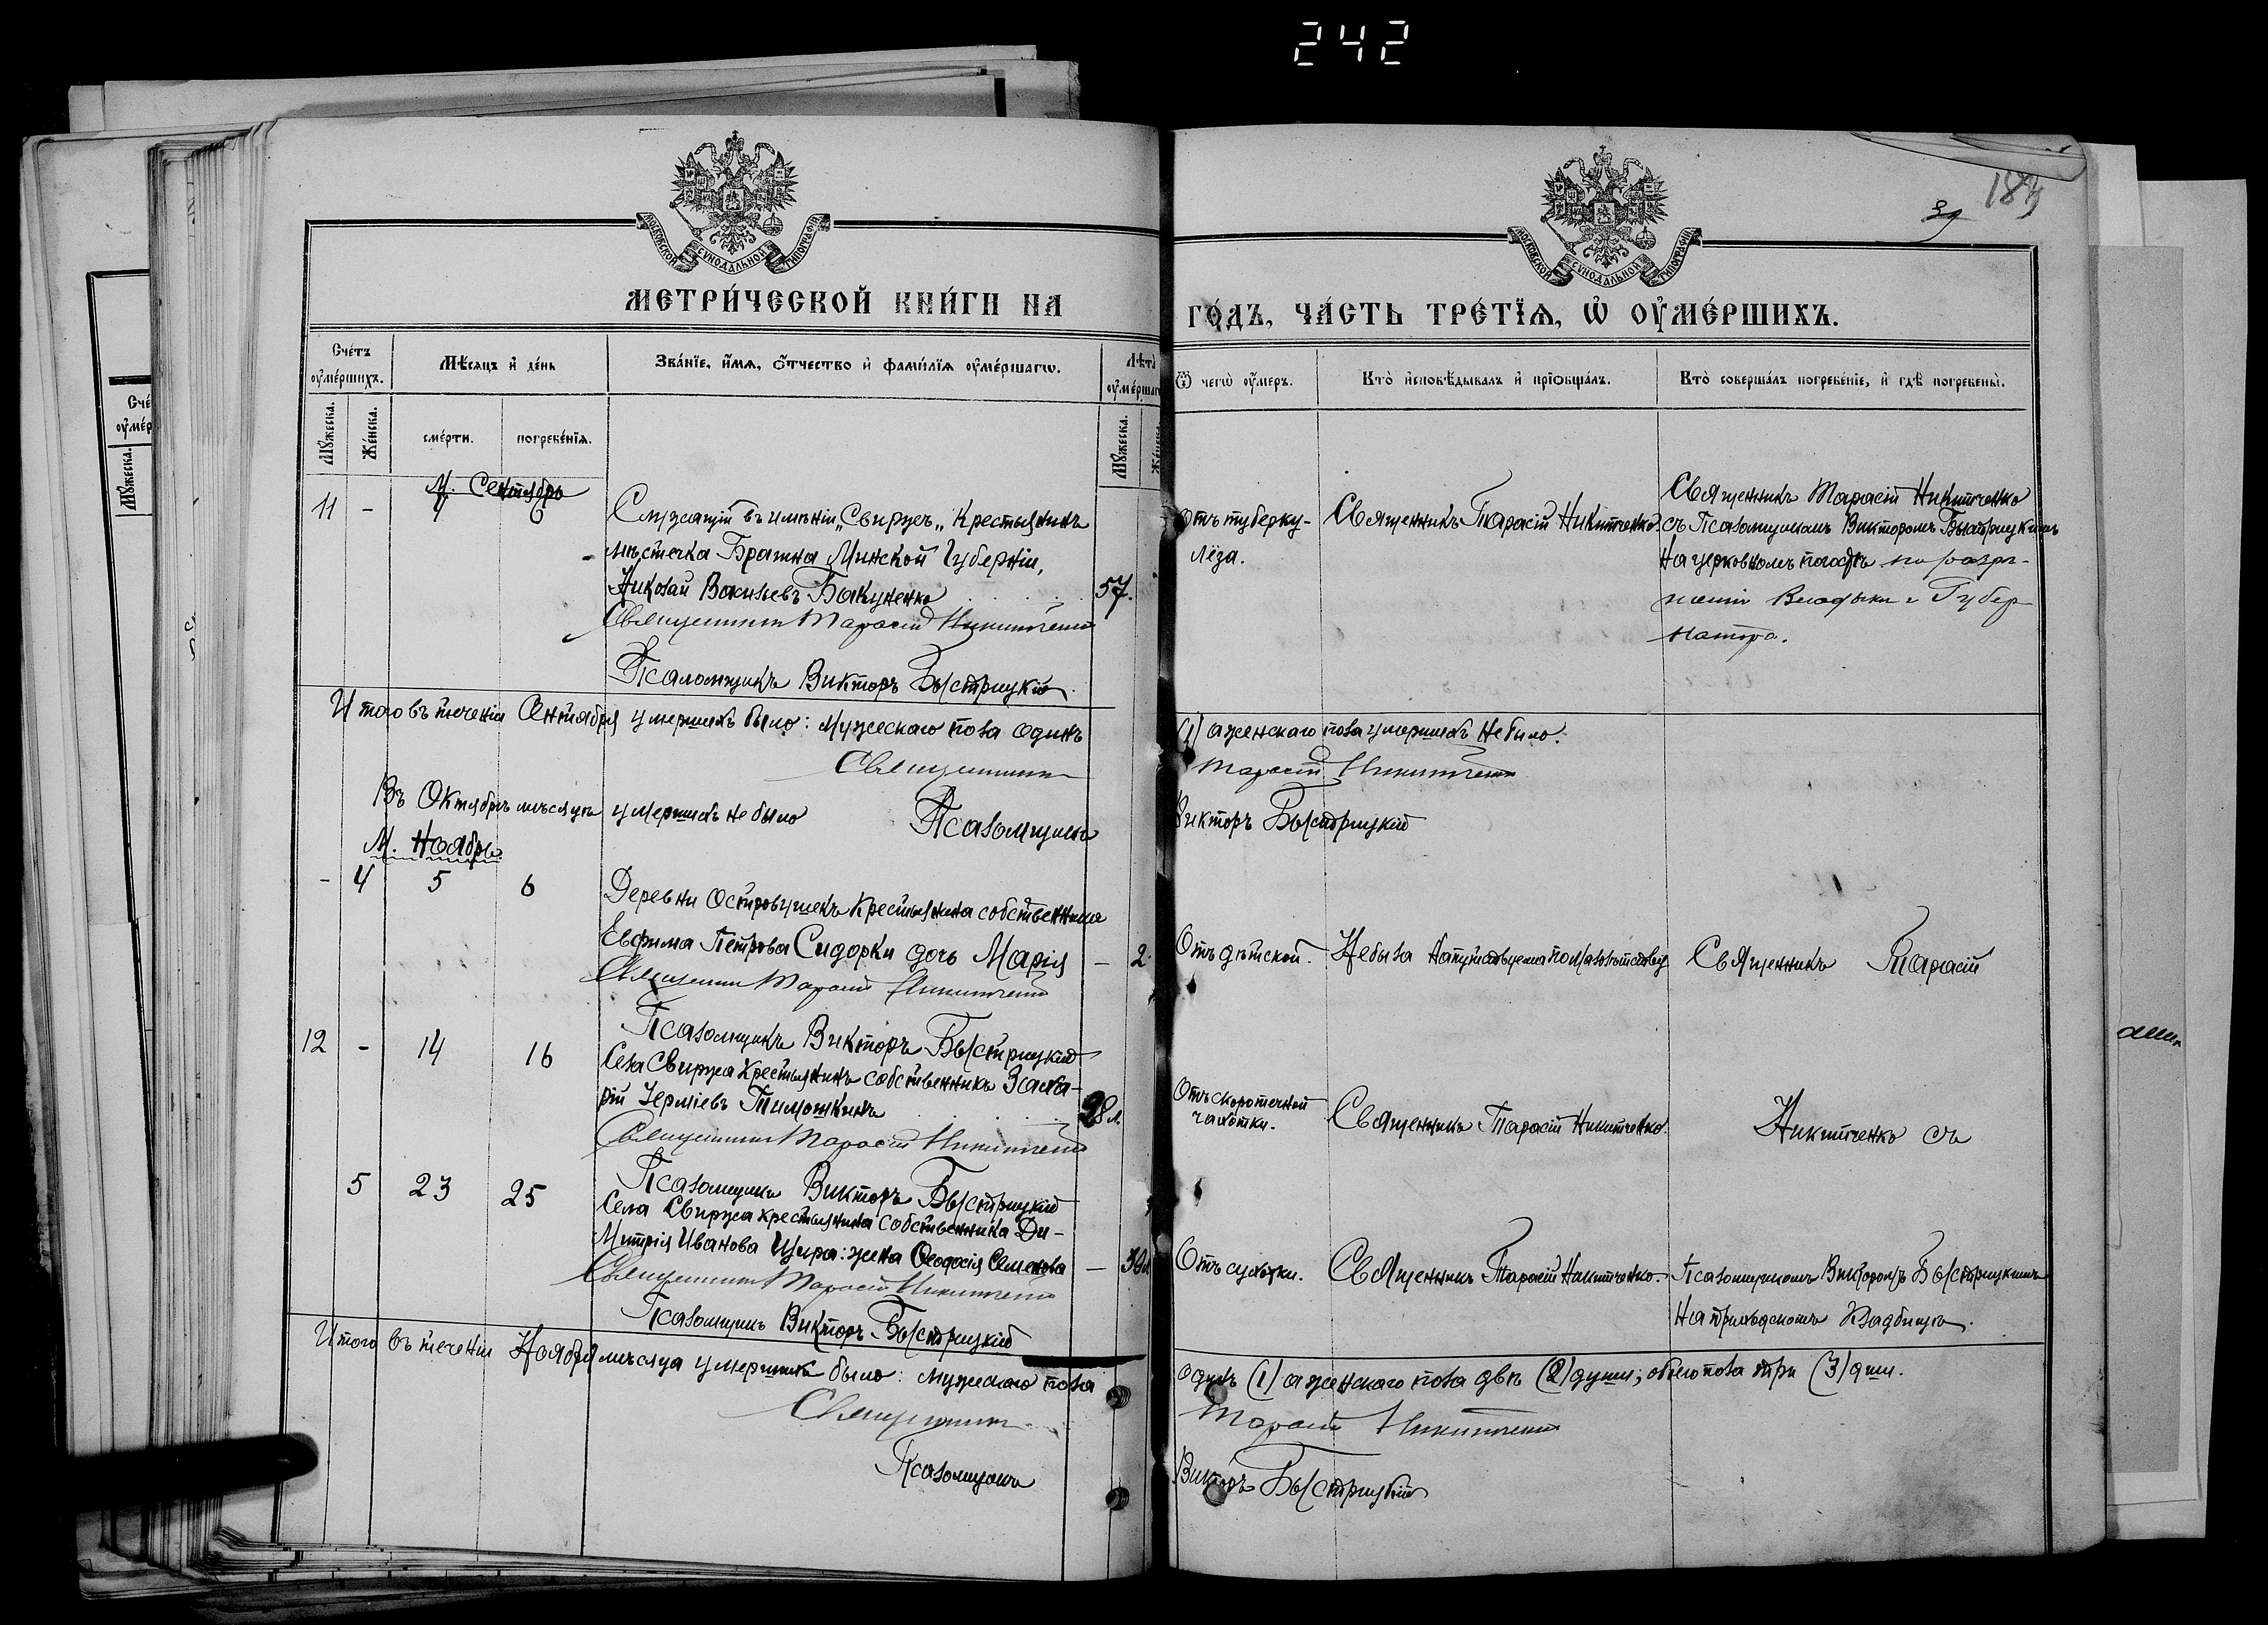 242
183
39
МОСКОВСКОЙ СѴНОДАЛЬНОЙ ТИПОГРАФІИ
МОСКОВСКОЙ СѴНОДАЛЬНОЙ ТИПОГРАФІИ
МЕТРИ́ЧЕСКОЙ КНИ́ГИ НА
ГО́ДЪ, ЧА́СТЬ ТРЕ́ТЇѦ, Ѡ ОУ҆МЕ́РШИХЪ.
Сче́тъ оу҆ме́ршихъ.
Мѣ́сяцъ и҆ де́нь
Зва́нїе, и҆́мѧ, ѻ҆́тчество и҆ фами́лїѧ оу҆ме́ршагѡ.
Лѣта̀
Ѿ чегѡ̀ оу҆́меръ.
Кто̀ и҆сповѣ́дывалъ и҆ прїѡбща́лъ.
Кто̀ соверша́лъ погребе́нїе, и҆ гдѣ̀ погребены̀.
Мꙋжеска.
Же́нска.
сме́рти.
погребе́нїѧ.
Мꙋжеска.
М. Сентябрь
11 - 4 6
Служащій въ имѣніи „Свиржъ„ Крестьянинъ
мѣстечка Брашна Минской Губерніи,
Николай Васильевъ Бакуненко 57.
Священникъ Тарасій Никитченко
Псаломщикъ Викторъ Быстрицкій.
Отъ туберку-
лёза.
Священникъ Тарасій Никитченко
Священникъ Тарасій Никитченко
съ Псаломщикомъ Викторомъ Быстрицкимъ
На церковномъ погостѣ по разрѣ-
шенію Владыки и Губер-
натора.
Итого въ теченіи Сентября умершихъ было: мужескаго пола одинъ
(1) а женскаго пола умершихъ не было.
Священникъ
Тарасій Никитченко
Въ Октябрѣ мѣсяцѣ умершихъ не было
Псаломщикъ
Викторъ Быстрицкій
М. Ноябрь.
- 4 5 6
Деревни Островушекъ Крестьянина собственника
Евфима Петрова Сидорки дочь Марія — 2.
Священникъ Тарасій Никитченко
Псаломщикъ Викторъ Быстрицкій
Отъ дѣтской.
Не была напутствуема по малолѣтству
Священникъ Тарасій
12 - 14 16
Села Свиржа Крестьянинъ собственникъ
Тимошкинъ 28 л.
Священникъ Тарасій Никитченко
Псаломщикъ Викторъ Быстрицкій
Отъ скоротечной
чахотки.
Священникъ Тарасій Никитченко.
Никитченко съ
5 23 25
Села Свиржа крестьянина собственника Ди-
митрія Иванова жена Ѳеодосія Семенова —
Священникъ Тарасій Никитченко
Псаломщикъ Викторъ Быстрицкій
Отъ сухотки.
Священникъ Тарасій Никитченко.
Псаломщикомъ Викторомъ Быстрицкимъ
На приходскомъ кладбищѣ.
Итого въ теченіи Ноября мѣсяца умершихъ было: мужескаго пола
одинъ (1) а женскаго пола двѣ (2) души; обоего пола три (3) души.
Священникъ
Тарасій Никитченко
Псаломщикъ
Викторъ Быстрицкій